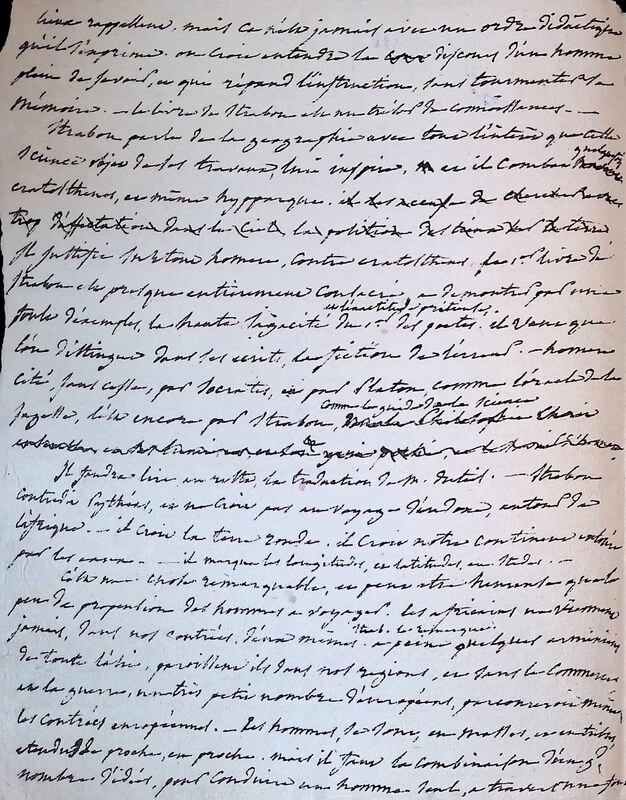 lieux rappellent, mais ce n'est jamais avec un ordre didactique
qu'il s'exprime. on croit entendre le discours d'un homme
plein de savoir, et qui répand l'instruction, sans tourmenter sa
mémoire. — le livre de Strabon est un trésor de connoissances. —
Strabon parle de la geographie avec tout l'intérêt que cette
science objet de ses travaux, lui inspire, et il combat quelquefois
eratosthenes, et même hypparque. et les accuse de chercher
trop d'affectation dans le ciel la position des lieux de la terre
Il justifie surtout homere, contre eratosthenes. le 1er livre de
Strabon est presque entierement consacré a demontrer par une
foule d'exemples, la haute sagacité et l'exactitude précieuse du 1er des poetes. il veut que
l'on distingue dans ses écrits, la fiction de l'erreur. — homere
cité, sans cesse, par Socrates, et par Platon, comme l'oracle de la
sagesse, l'est encore par Strabon, comme le guide de la science
Il faudra lire en entier, la traduction de M. — Strabon
contredit Pythéas, et ne croit pas au voyage d'eudoxe, autour de
l'afrique. — il croit la terre ronde. il croit notre continent entouré
par les eaux. — il marque les longitudes, et latitudes, en stades. —
C'est une chose remarquable, et peut etre heureuse que le
peu de propension des hommes a voyager. les africains ne viennent
jamais, dans nos contrées, d'eux mêmes. Strab. le remarque. a peine quelques arméniens
de toute l'asie, paroissent ils dans nos regions, et sans le commerce
et la guerre, un très petit nombre d'européens, parcourroit même
les contrées européennes. — Les hommes se sont, en masses, et en tribus
etendus de proche, en proche. mais il faut la combinaison d'un gd
nombre d'idées, pour conduire un homme seul, a travers une